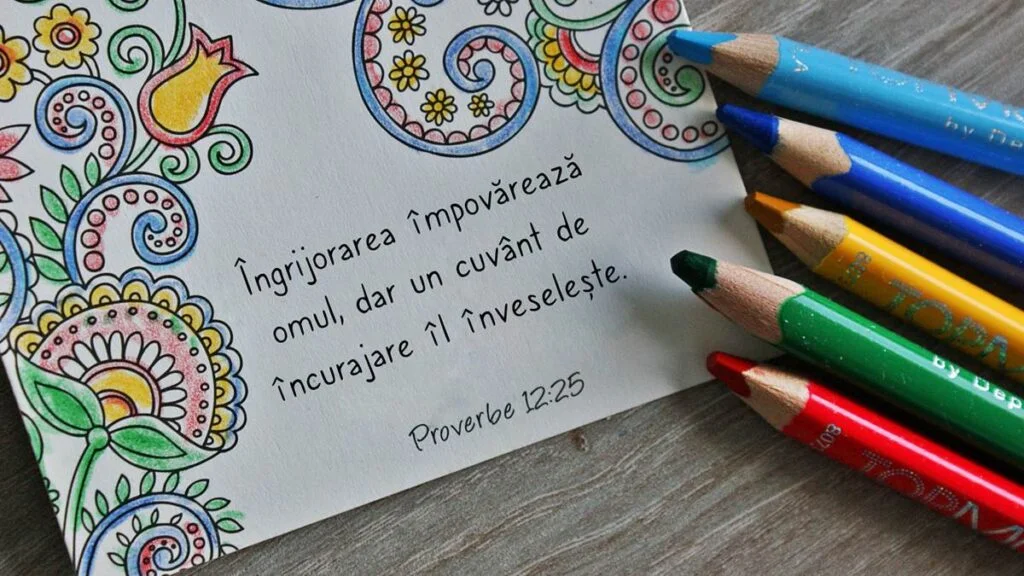 Îngrijorarea împovărează
omul, dar un cuvânt de
încurajare îl înveselește.
Proverbe 12:25
by De
TOPM
by Dep
TOPM